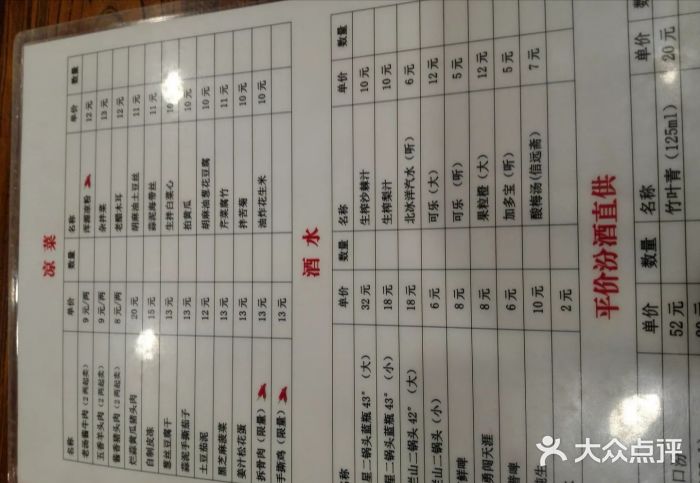 凉菜
名称 单价 数量 名称 单价 数量
老酱酱牛肉(2两起卖) 9元/两 浑源凉粉 12元
五香羊头肉(2两起卖) 9元/两 杂拌菜 13元
酱香猪头肉(2两起卖) 8元/两 老醋木耳 12元
烂蒜黄瓜猪头肉 20元 胡麻油土豆丝 11元
自制皮冻 15元 蒜泥海带丝 11元
葱丝豆腐干 13元 生拌白菜心 10元
蒜泥手撕茄子 13元 拍黄瓜 10元
土豆茄泥 12元 胡麻油葱花豆腐 10元
黑芝麻菠菜 13元 芹菜腐竹 11元
姜汁松花蛋 13元 拌苦菊 10元
拆骨肉(限量) 13元 油炸花生米 10元
手撕鸡(限量) 13元
酒水
名称 单价 数量 名称 单价 数量
星二锅头蓝瓶43°(大) 32元 生榨沙棘汁 10元
星二锅头蓝瓶43°(小) 18元 生榨梨汁 10元
山二锅头42°(大) 18元 北冰洋汽水(听) 6元
山二锅头(小) 6元 可乐(大) 12元
鲜啤 8元 可乐(听) 5元
勇闯天涯 8元 果粒橙(大) 12元
普啤 6元 加多宝(听) 5元
纯生 10元 酸梅汤(信远斋) 7元
2元
平价汾酒直供
单价 数量 名称 单价 数量
52元 竹叶青(125ml) 20元
大众点评